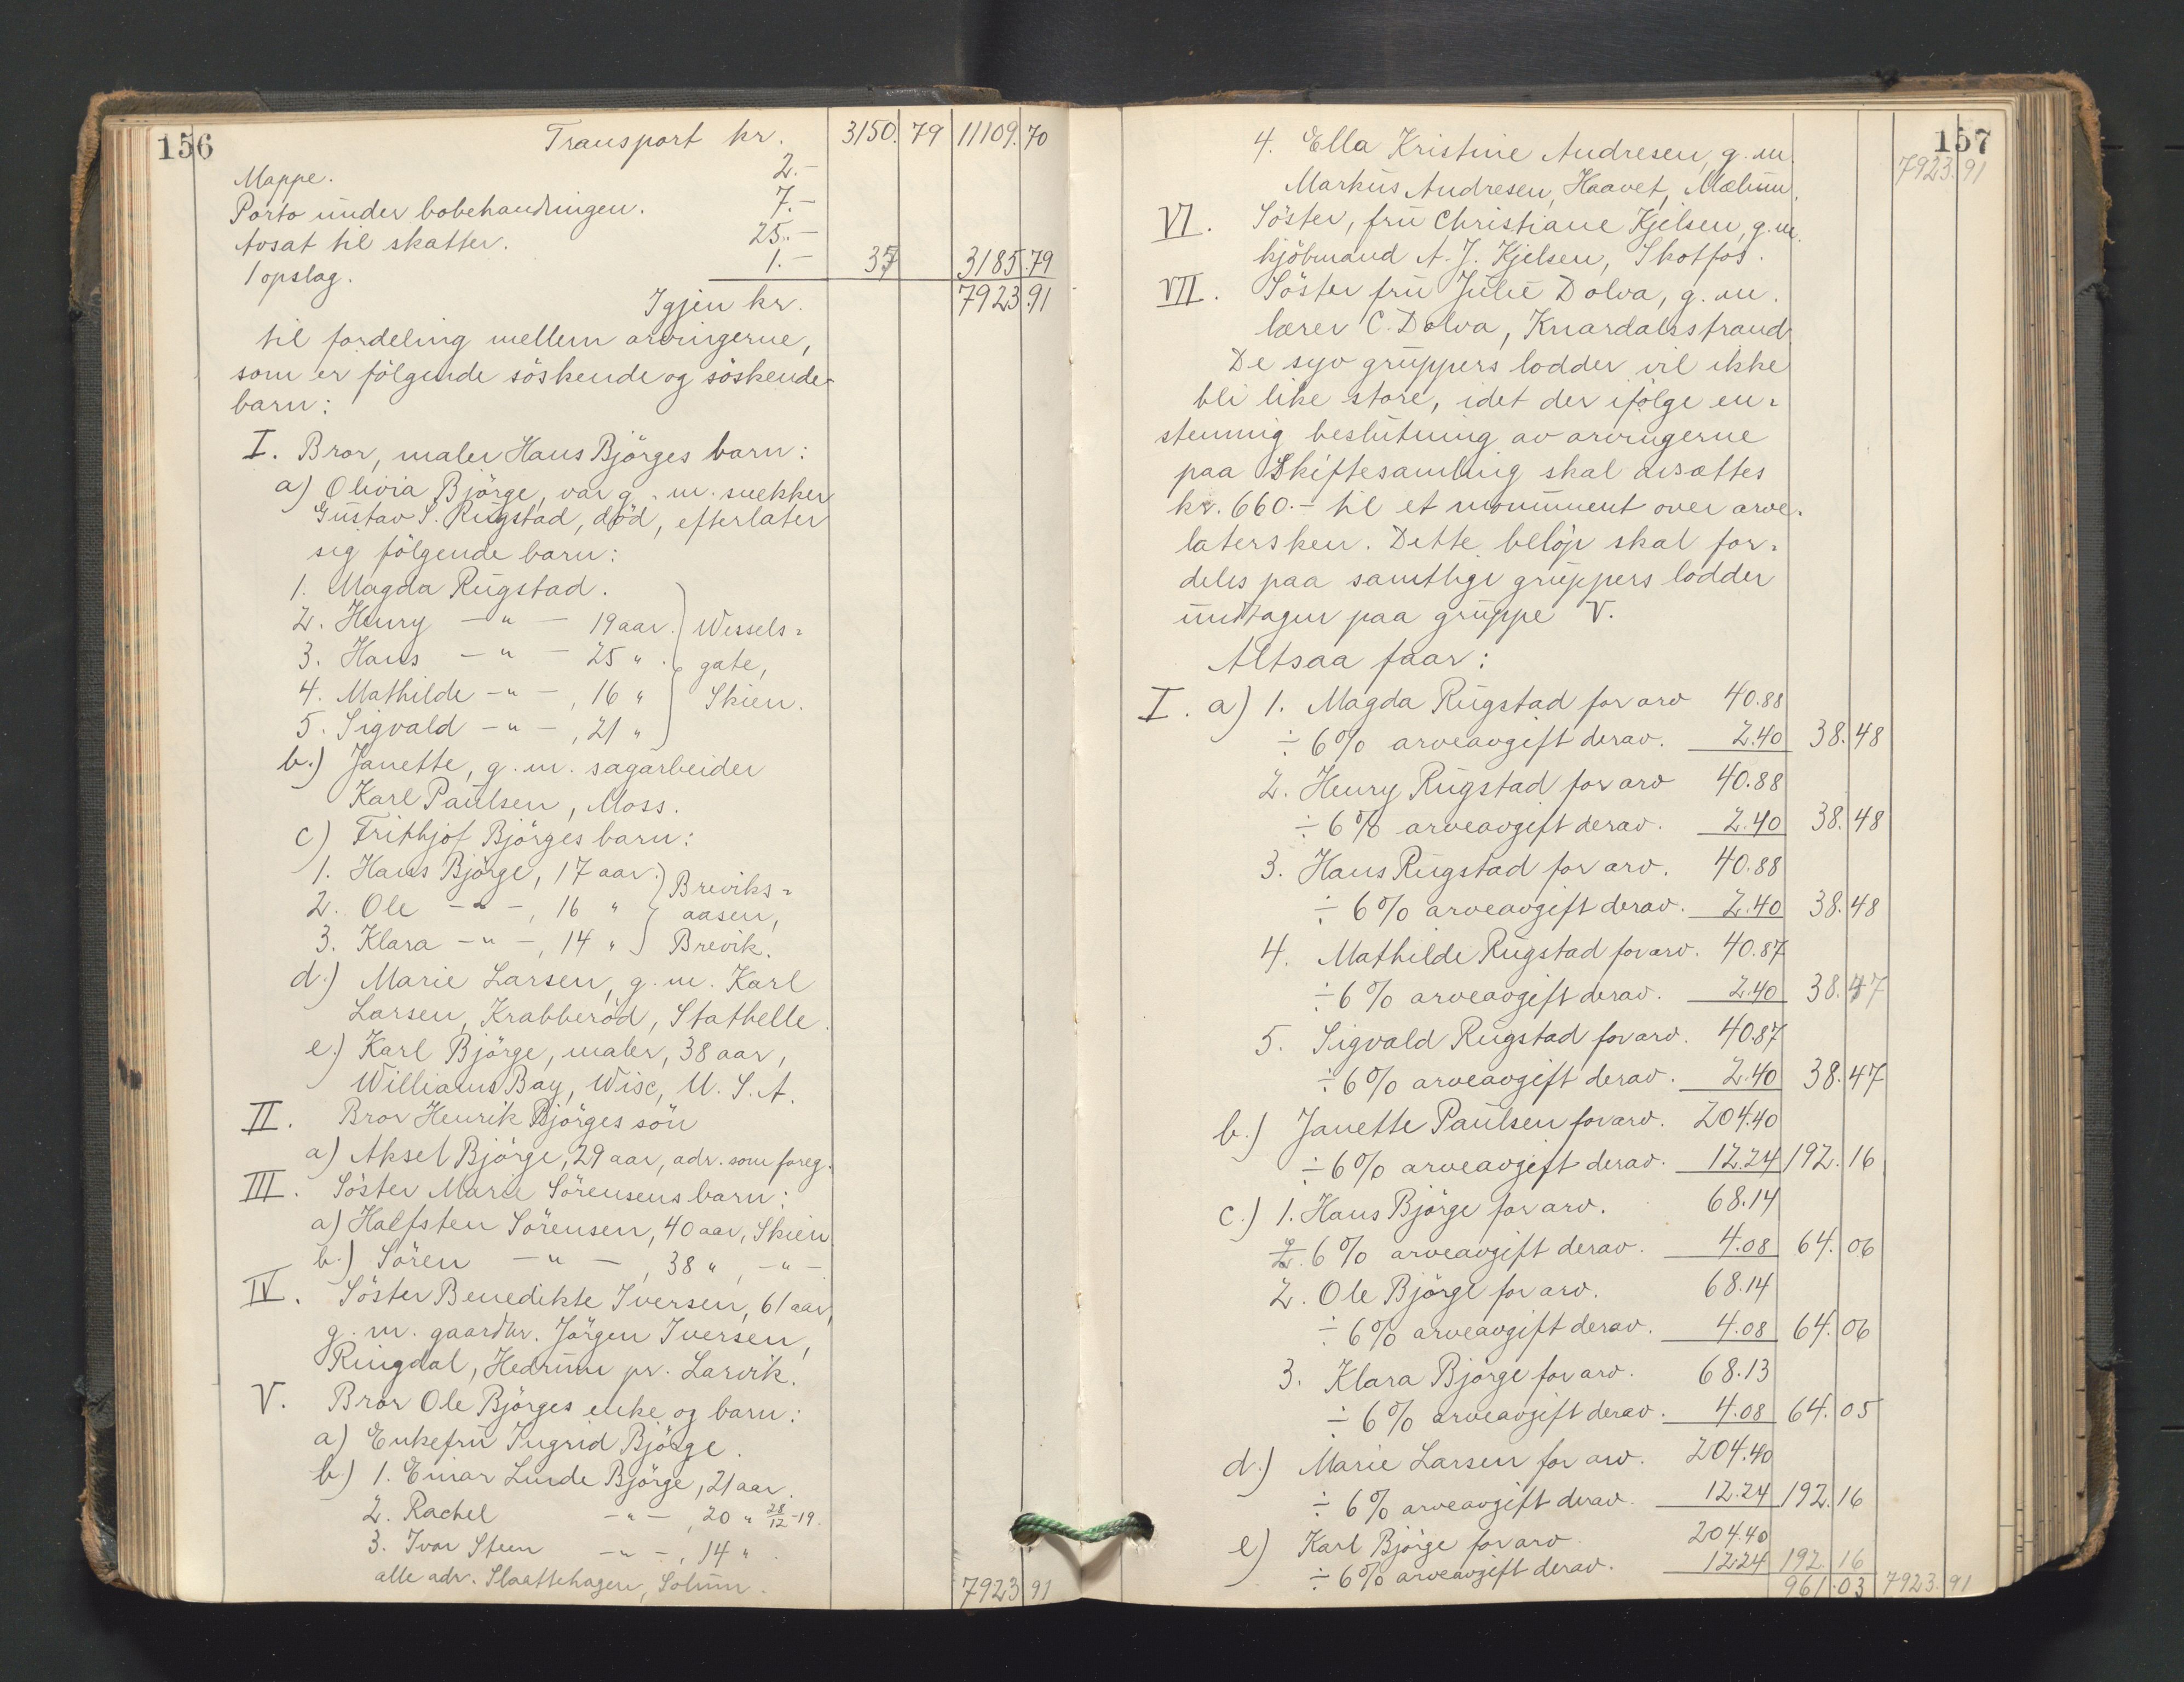 156
Transport kr. 3150.79 11109.70
Mappe. 2.-
Porto under bobehandlingen. 7.-
Avsat til skatter. 25.-
1 opslag. 1.- 35 3185.79
Igjen kr. 7923.91
til fordeling mellem arvingerne,
som er følgende söskende og söskende-
barn:
I. Bror, maler Hans Björges barn:
a) Olivia Björge, var g. m. snekker
Gustav S. Rugstad, död, efterlater
sig fölgende barn:
1. Magda Rugstad.
2. Henry -"- 19 aar. Wessels-
3. Hans -"- 25 " . gate,
4. Mathilde -"-, 16 " Skien.
5. Sigvald -"-, 21 "
b.) Janette, g. m. sagarbeider
Karl Paulsen, Moss.
c) Frithjof Björges barn:
1. Hans Björge, 17 aar. Breviks-
2. Ole -"-, 16 " aasen,
3. Klara -"-, 14 " Brevik.
d.) Marie Larsen, g. m. Karl
Larsen, Krabberöd, Stathelle.
e.) Karl Björge, maler, 38 aar,
Williams Bay, Wisc, U. S. A.
II. Bror Henrik Björges sön
a) Aksel Björge, 29 aar, adr. som foreg.
III. Söster Marie Sörensens barn:
a) Halfsten Sörensen, 40 aar, Skien
b.) Sören -"-, 38 ", -"-
IV. Söster Benedikte Iversen, 61 aar,
g. m. gaardbr. Jörgen Iversen,
Ringdal, Hedrum pr. Larvik.
V. Bror Ole Björges enke og barn:
a) Enkefru Ingrid Björge.
b.) 1. Einar Linde Björge, 21 aar.
2. Rachel -"-, 20 " 28/12-19.
3. Ivar Steen -"-, 14 " .
alle adr. Slaattehagen, Solum.
7923.91
157
7923.91
4. Ella Kristine Andresen, g. m.
Markus Andresen, Haavet, Mælum.
VI. Söster, fru Christiane Kjelsen, g. m.
kjöbmand A. J. Kjelsen, Skotfos.
VII. Söster fru Julie Dolva, g. m.
lærer C. Dolva, Knardalsstrand.
De syv gruppers lodder vil ikke
bli like store, idet der ifölge en-
stemmig beslutning av arvingerne
paa Skiftesamling skal avsættes
kr. 660.- til et monument over arve-
latersken. Dette belöp skal for-
deles paa samtlige gruppers lodder
undtagen paa gruppe V.
Altsaa faar:
I. a) 1. Magda Rugstad for arv 40.88
÷ 6% arveavgift derav. 2.40 38.48
2. Henry Rugstad for arv 40.88
÷ 6% arveavgift derav. 2.40 38.48
3. Hans Rugstad for arv. 40.88
÷ 6% arveavgift derav. 2.40 38.48
4. Mathilde Rugstad for arv. 40.87
÷ 6% arveavgift derav. 2.40 38.47
5. Sigvald Rugstad for arv. 40.87
÷ 6% arveavgift derav. 2.40 38.47
b.) Janette Paulsen for arv. 204.40
÷ 6% arveavgift derav. 12.24 192.16
c.) 1. Hans Björge for arv. 68.14
÷ 6% arveavgift derav. 4.08 64.06
2. Ole Björge for arv. 68.14
÷ 6% arveavgift derav. 4.08 64.06
3. Klara Björge for arv. 68.13
÷ 6% arveavgift derav. 4.08 64.05
d.) Marie Larsen for arv. 204.40
÷ 6% arveavgift derav. 12.24 192.16
e) Karl Björge for arv 204.40
÷ 6% arveavgift derav. 12.24 192.16
961.03 7923.91